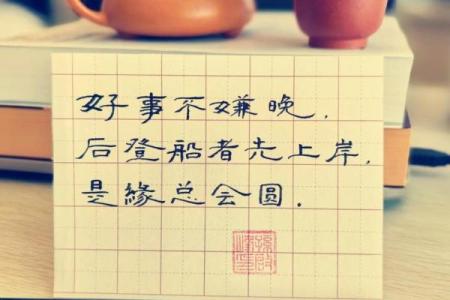 好事不嫌晚，
后登船者先上岸，
是緣总会圆．